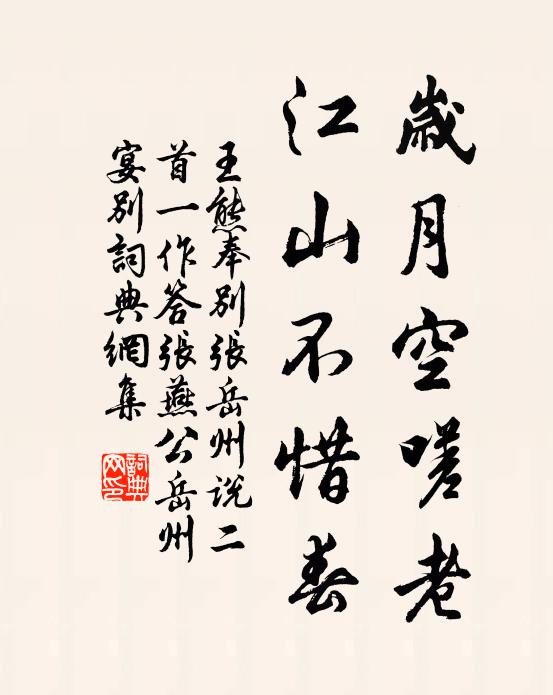 歲月空嗟老
江山不惜春
王熊奉別張岳州說二
首一作答張燕公岳州
宴別詞典網集
詞典
网印